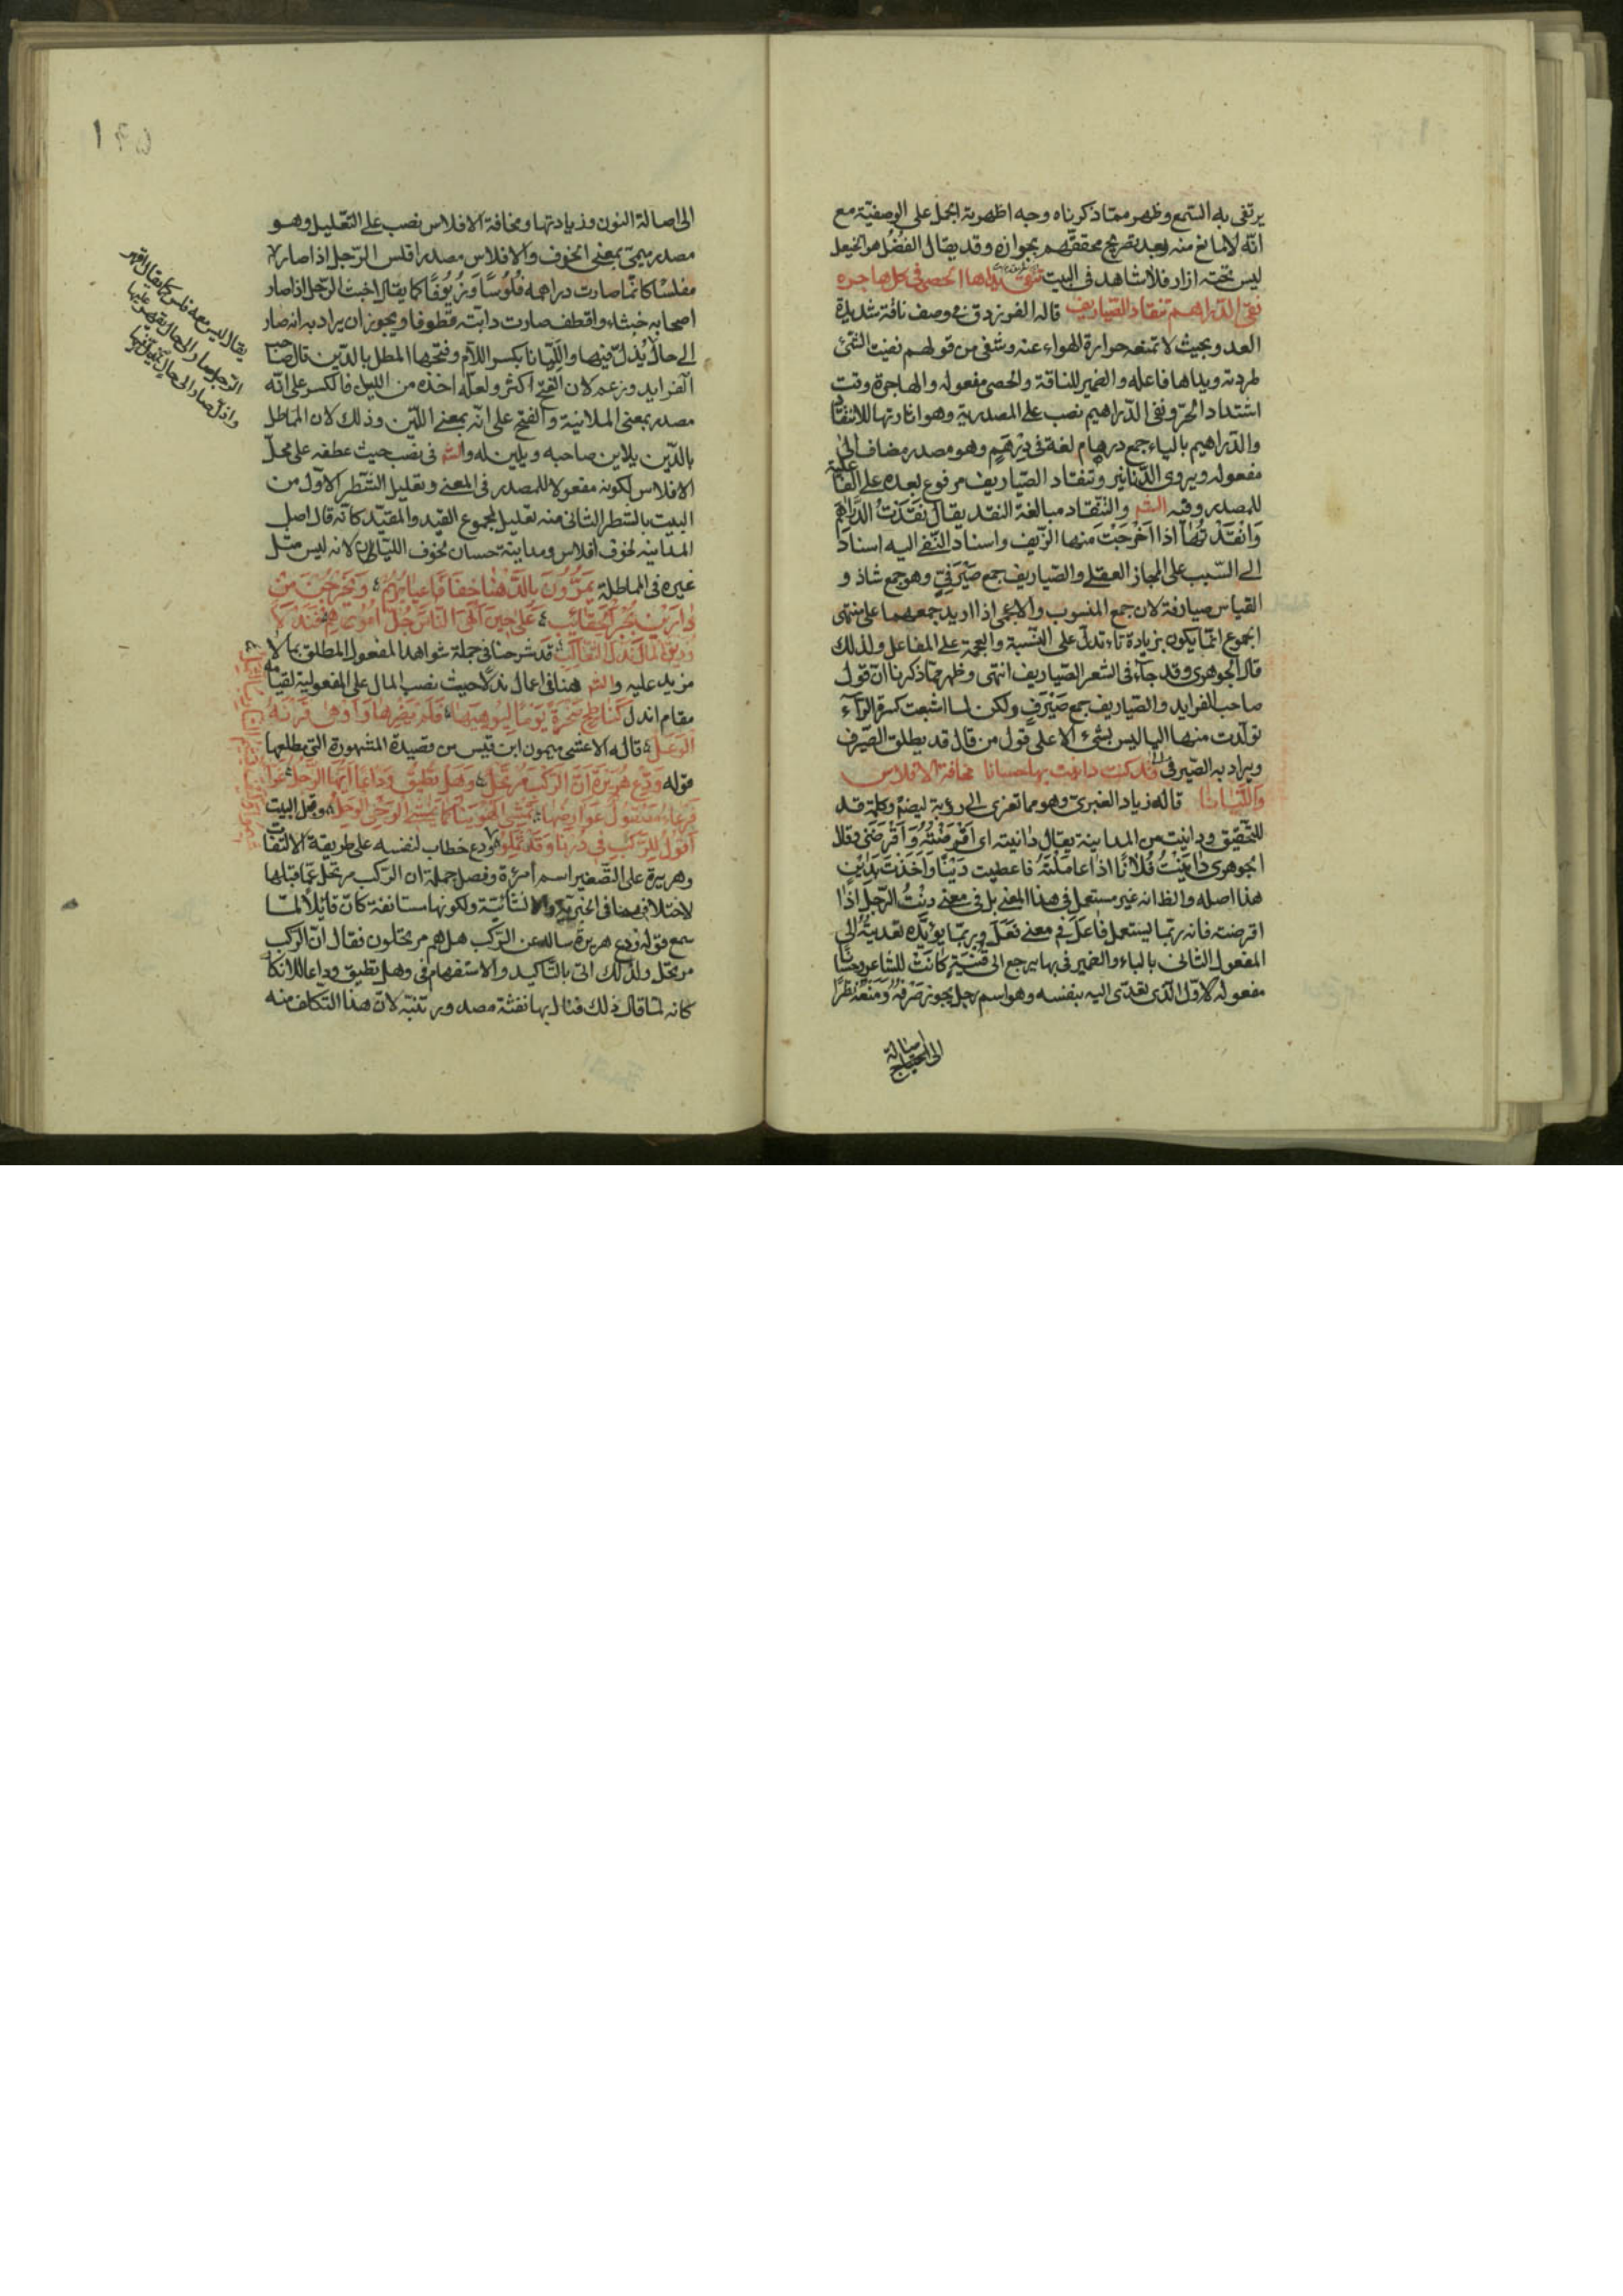 يرتقى به السمع وظهر مما ذكرناه وجه اظهرية الحمل على الوصفية مع
انه لا مانع منه بعد تصريح محققيهم بجوازه وقد يقال الفضل هو الخيعل
ليس تحته ازار فلا شاهد فى البيت تنفى يداها الحصى فى كل هاجرة
نفى الدراهيم تنقاد الصياريف قاله الفرزدق فى وصف ناقة شديدة
العدو بحيث لا تمنعه حرارة الهواء عنه وتنفى من قولهم نفيت الشئ
طردته ويداها فاعله والضمير للناقة والحصى مفعوله والهاجرة وقت
اشتداد الحر ونفى الدراهيم نصب على المصدرية وهو اثارتها للانتقاد
والدراهيم بالياء جمع درهام لغة فى درهم وهو مصدر مضاف الى
مفعوله ويروى الدنانير وتنقاد الصياريف مرفوع بعده على الفاعلية
للمصدر وفيه الشم والتنقاد مبالغة النقد يقال نقدت الدراهم
وانتقدتها اذا اخرجت منها الزيف واسناد النفى اليه اسناد
الى السبب على المجاز العقلى والصياريف جمع صيرفى وهو جمع شاذ و
القياس صيارفة لان جمع المنسوب والاعجمى اذا اريد جمعهما على منتهى
الجموع انما يكون بزيادة تاء تدل على النسبة والعجمة على المفاعل ولذلك
قال الجوهرى وقد جاء فى الشعر الصياريف انتهى وظهر مما ذكرنا ان قول
صاحب الفرايد والصياريف جمع صيرف ولكن لما اشبعت كسرة الراء
تولدت منها اليا ليس بشئ الا على قول من قال قد يطلق الصيرف
ويراد به الصيرفى قد كنت داينت بها حسانا مخافة الافلاس
والليانا قاله زياد العنبرى وهو مما تعزى الى رؤبة ايضا وكلمة قد
للتحقيق وداينت من المداينة يقال داينته اى اقرضته واقرضنى وقال
الجوهرى داينت فلانا اذا عاملته فاعطيت دينا واخذت بدين
هذا اصله والظ انه غير مستعمل فى هذا المعنى بل فى معنى دنت الرجل اذا
اقرضته فانه ربما يستعمل فاعل فى معنى فعل وربما يؤيده تعديته الى
المفعول الثانى بالباء والضمير فى بها يرجع الى قينة كانت للشاعر وحسانا
مفعوله الاول الذى تعدى اليه بنفسه وهو اسم رجل يجوز صرفه ومنعه نظرا
الى اصالة
الى اصالة النون وزيادتها ومخافة الافلاس نصب على التعليل وهو
مصدر ميمى بمعنى الخوف والافلاس مصدر افلس الرجل اذا صار
مفلسا كانما صارت دراهمه فلوسا وزيوفا كما يقال اخبث الرجل اذا صار
اصحابه خبثاء واقطف صارت دابته قطوفا ويجوز ان يراد به انه صار
الى حال يذل فيها والليانا بكسر اللام وفتحها المطل بالدين قال صاحب
الفرايد وزعم لان الفتح اكثر ولعله اخذه من الليل فالكسر على انه
مصدر بمعنى الملاينة والفتح على انه بمعنى اللين وذلك لان المماطل
بالدين يلاين صاحبه ويلين له والشم فى نصب حيث عطفه على محل
الافلاس لكونه مفعولا للمصدر فى المعنى وتعليل الشطر الاول من
البيت بالشطر الثانى منه تعليل لمجموع القيد والمقيد كانه قال اصل
المداينه لخوف افلاس ومداينة حسان لخوف الليان لانه ليس مثل
غيره فى المماطلة يمرون بالدهنا خفافا عيابهم ويخرجن من
دارين بجر الحقائب على حين الهى الناس جل امورهم فندلا
زريق المال ندل الثعالب قد شرحنا فى جملة شواهد المفعول المطلق بما لا
مزيد عليه والشم هنا فى اعمال ندلا حيث نصب المال على المفعولية لقيامه
مقام اندل كناطح صخرة يوما ليوهنها فلم يضرها واوهى قرنه
الوعل قاله الاعشى ميمون ابن قيس من قصيدة المشهورة التى مطلعها
قوله ودع هريرة ان الركب مرتحل وهل تطيق وداعا ايها الرجل غراء
فرعاء مصقول عوارضها تمشى الهوينا كما يمشى الوجى الوحل وقبل البيت
اقول للركب فى درنا وقد ثملوا ودع خطاب لنفسه على طريقة الالتفات
وهريرة على التصغير اسم امرءة وفصل جملة ان الركب مرتحل عما قبلها
لاختلافهما فى الخبرية والانشائية ولكونها مستانفة كان قائلا لما
سمع قوله ودع هريرة ساله عن الركب هل هم مرتحلون فقال ان الركب
مرتحل ولذلك اتى بالتاكيد والاستفهام فى وهل تطيق وداعا للانكار
كانه لما قال ذلك قال بها نفثة مصدور تنبه لان هذا التكلف منه
يقال ليس معه فلس كما يقال اقهر
الرجل صار الى حال يقهر عليها
واذل صار الى حال يذل فيها